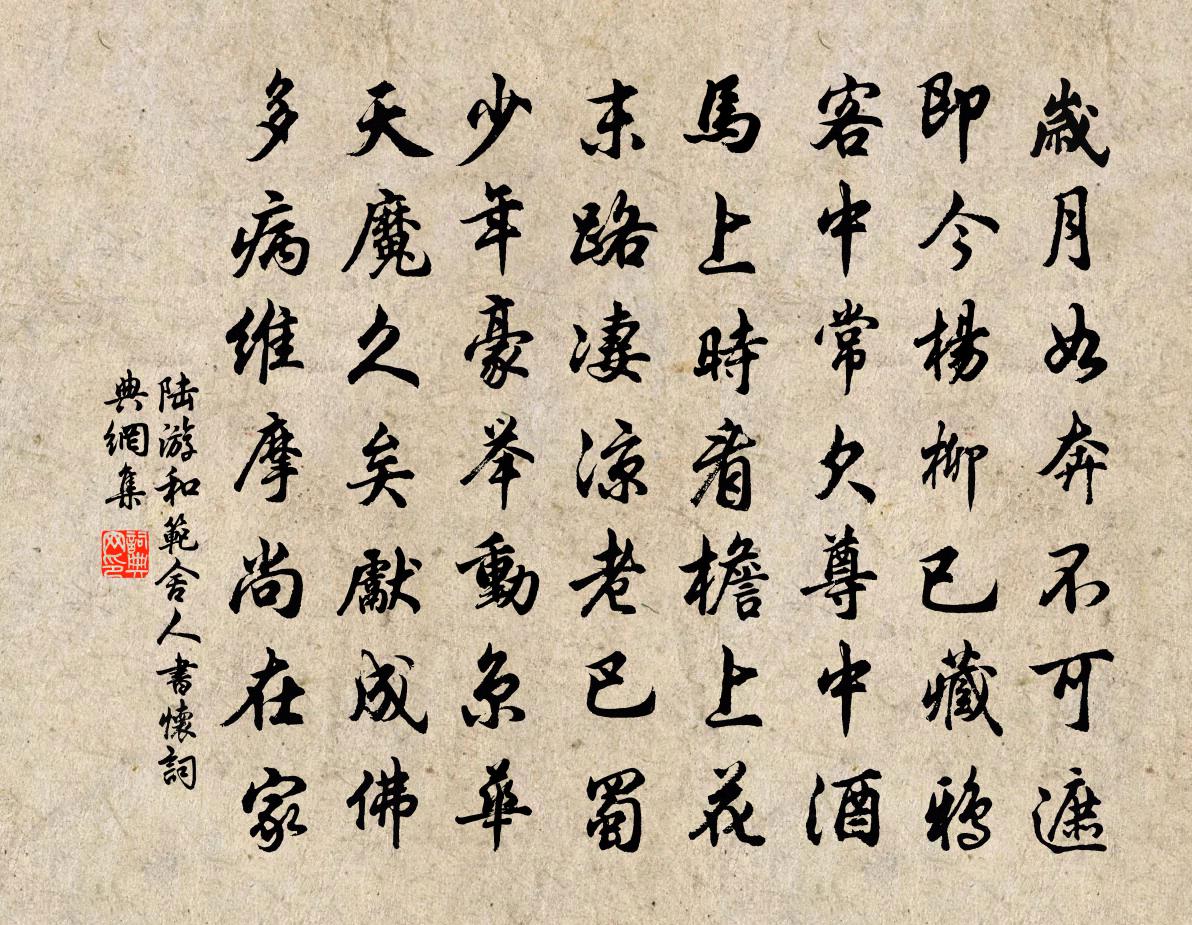 歲月如奔不可遮
即今楊柳已藏鴉
客中常欠尊中酒
馬上時看檐上花
末路凄涼老巴蜀
少年豪举動京華
天魔久矣獻成佛
多病維摩尚在家
陆游和範舍人書懷詞
典網集
詞典
网印